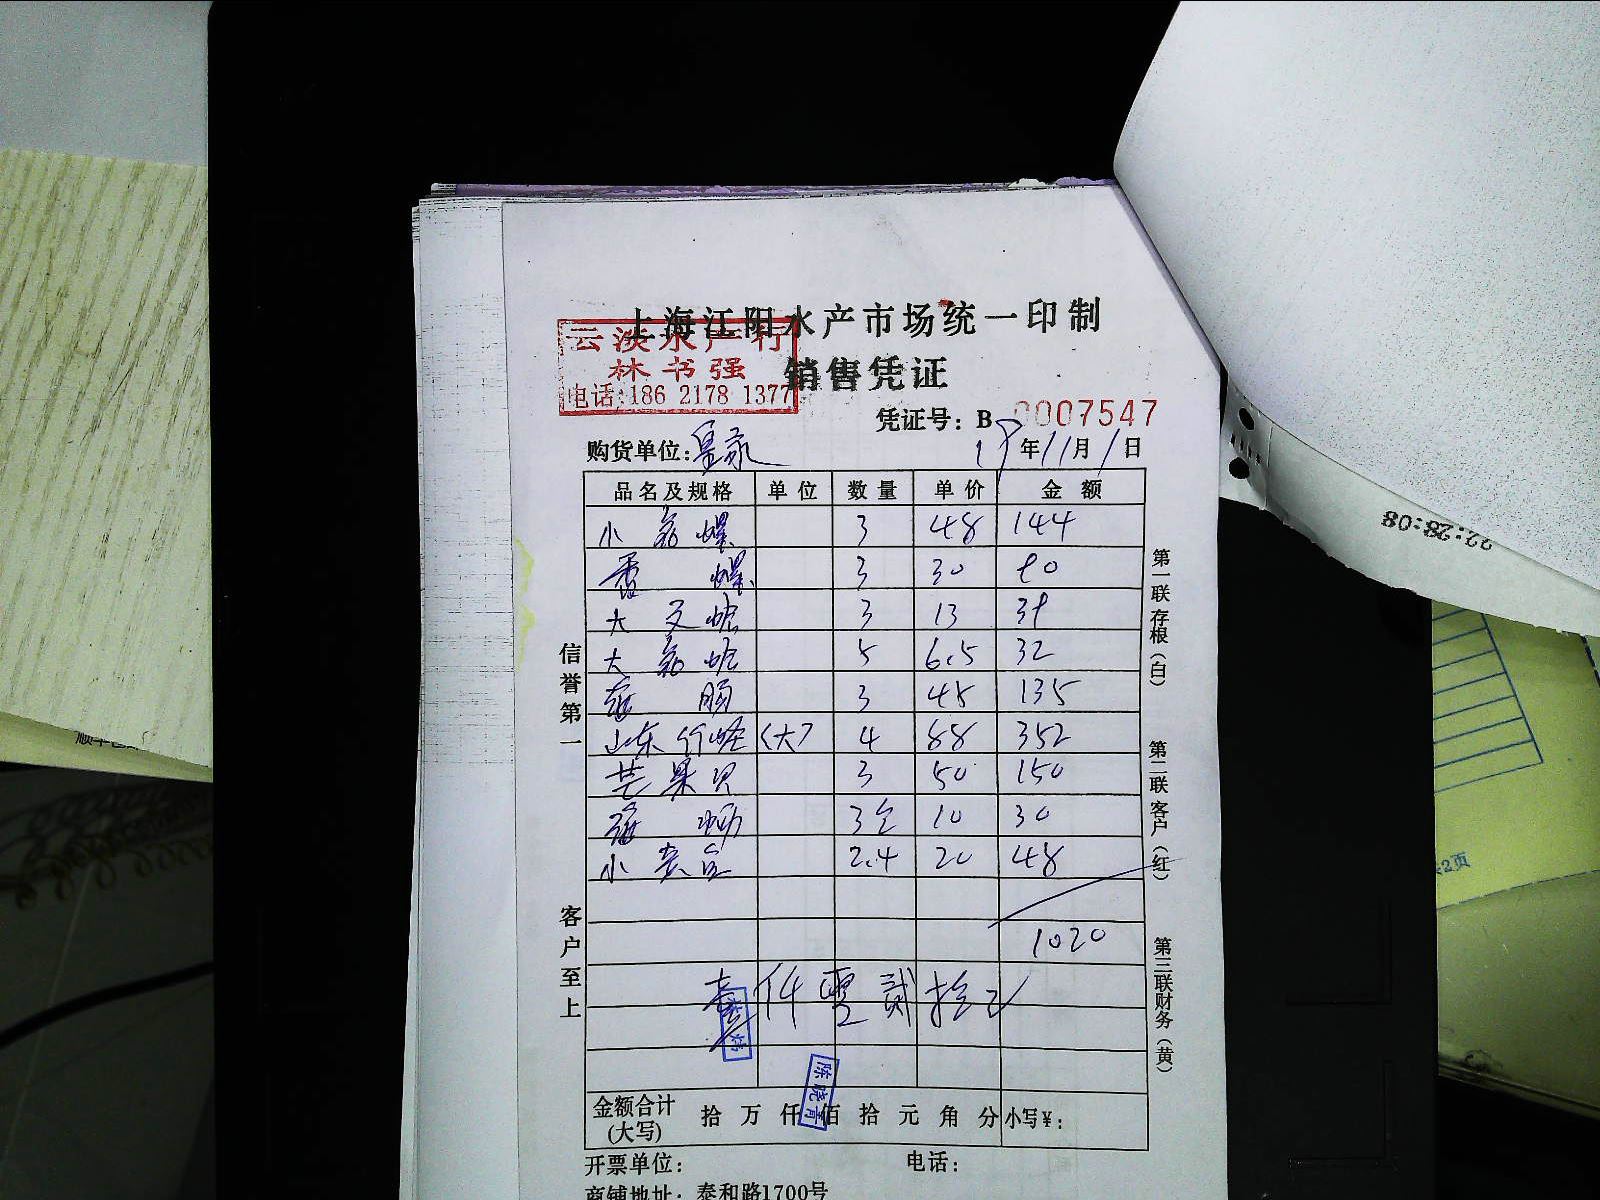 上海江阳水产市场统一印制
云淡水产行
林书强
电话:186 2178 1377
销售凭证
凭证号：B 0007547
购货单位：
年11月1日
品名及规格 单位 数量 单价 金额
小 螺 3 48 144
螺 3 30 90
大 文蛤 3 13 39
大 蛤 5 6.5 32
肠 3 45 135
山东竹蛏 (大) 4 88 352
芒果贝 3 50 150
3 10 30
小 2.4 20 48
1020
壹仟零贰拾元
陈晓青
金额合计(大写) 拾 万 仟 佰 拾 元 角 分 小写¥：
开票单位： 电话：
商铺地址：泰和路1700号
信誉第一
客户至上
第一联存根(白)
第二联客户(红)
第三联财务(黄)
22:28:08
2页